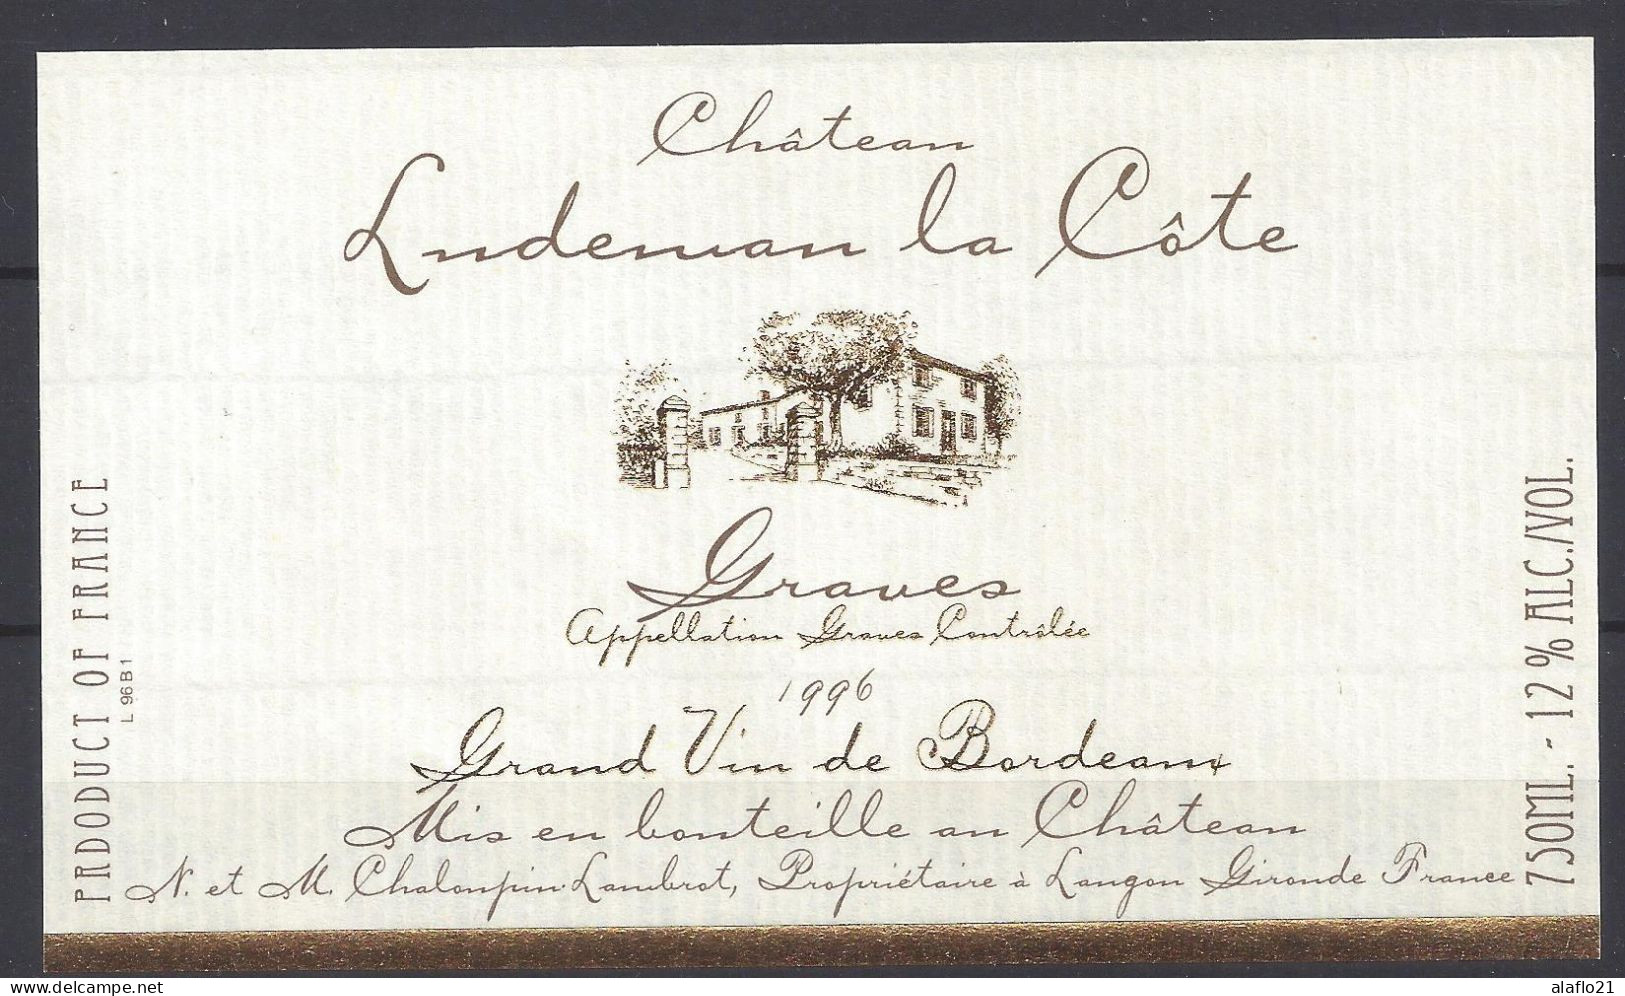 Château
Ludeman la Côte
Graves
Appellation Graves Contrôlée
1996
Grand Vin de Bordeaux
Mis en bouteille au Château
N. et M. Chaloupin-Lambrot, Propriétaire à Langon Gironde France
PRDODUCT OF FRANCE
L 96 B 1
750ML. - 12 % ALC./VOL.
delcampe.net
alaflo21